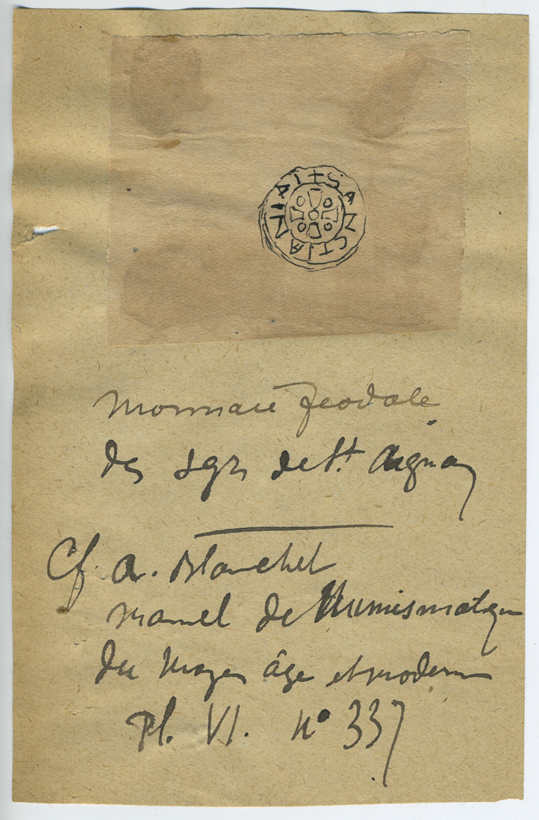 +SANCTIANIAI
Monnaie feodale
des sgrs de St. Aignan
Cf A. Blanchet
Manuel de Numismatique
du Moyen âge et moderne
Pl. VI. n° 337